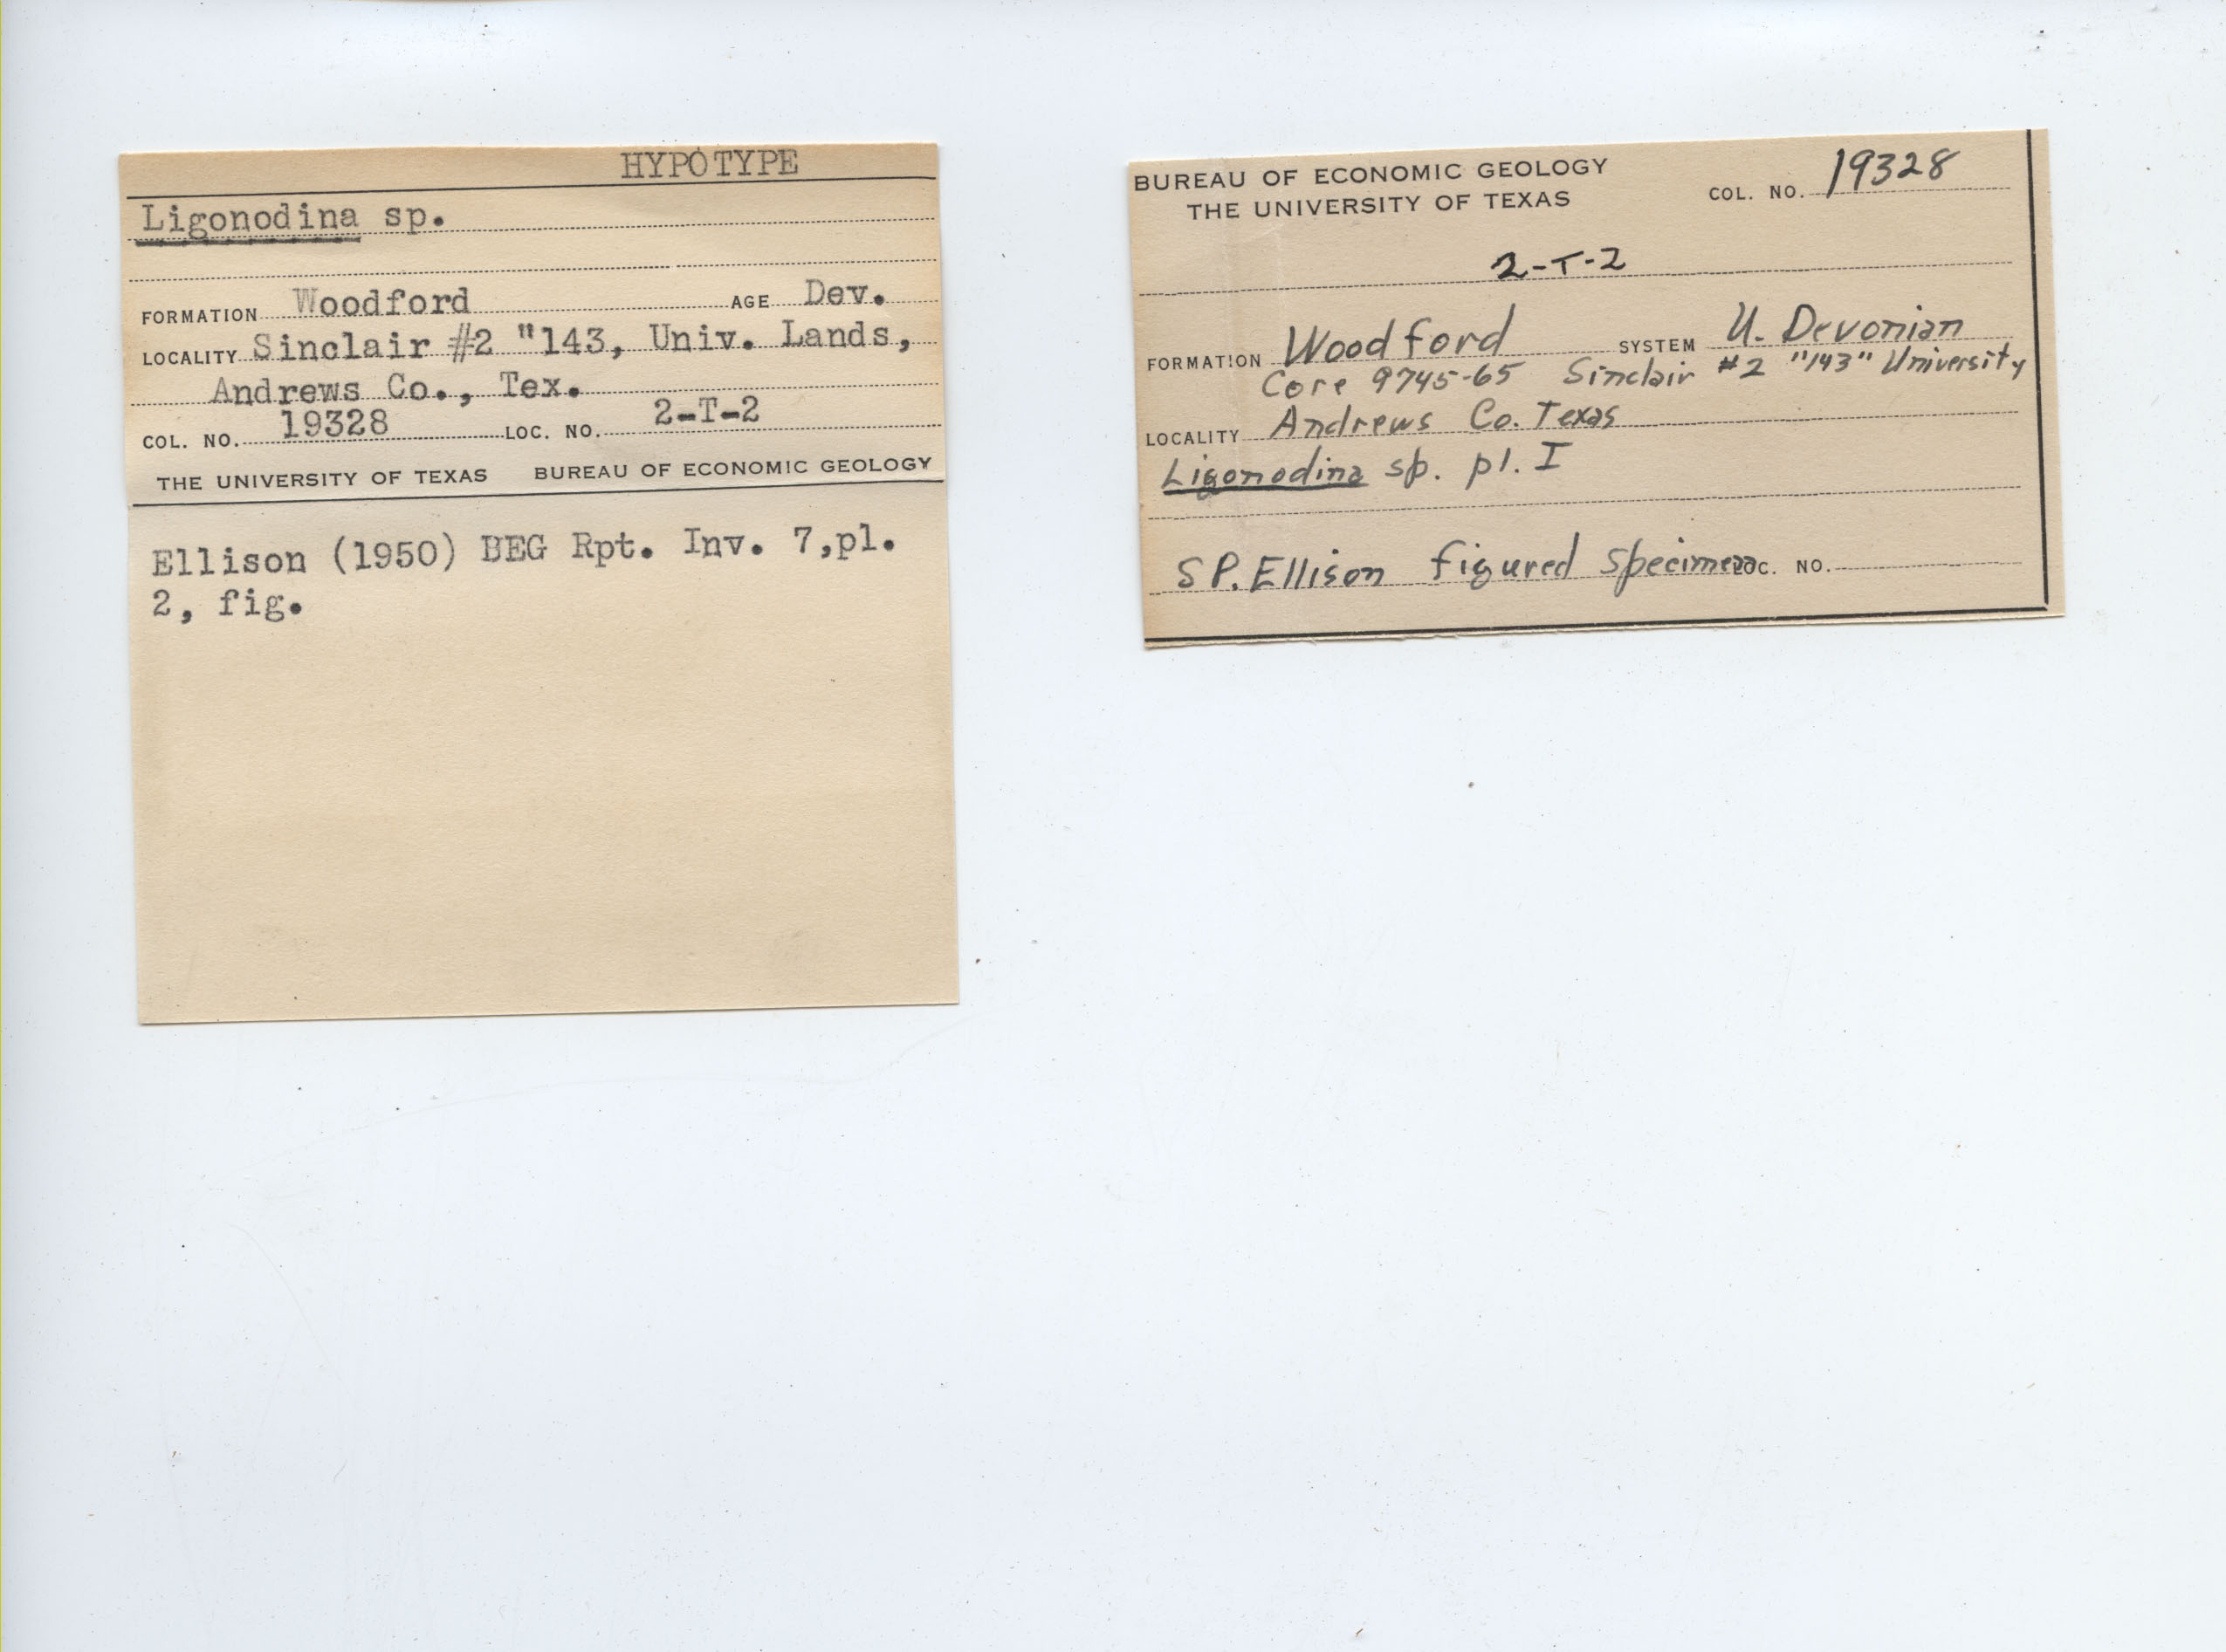 HYPOTYPE
Ligonodina sp.
FORMATION Woodford AGE Dev.
LOCALITY Sinclair #2 "143, Univ. Lands,
Andrews Co., Tex.
COL. NO. 19328 LOC. NO. 2-T-2
THE UNIVERSITY OF TEXAS BUREAU OF ECONOMIC GEOLOGY
Ellison (1950) BEG Rpt. Inv. 7,pl.
2, fig.
BUREAU OF ECONOMIC GEOLOGY
THE UNIVERSITY OF TEXAS COL. NO. 19328
2-T-2
FORMATION Woodford SYSTEM U. Devonian
Core 9745-65 Sinclair #2 "143" University
LOCALITY Andrews Co. Texas
Ligonodina sp. pl. I
SP. Ellison figured specimen LOC. NO.